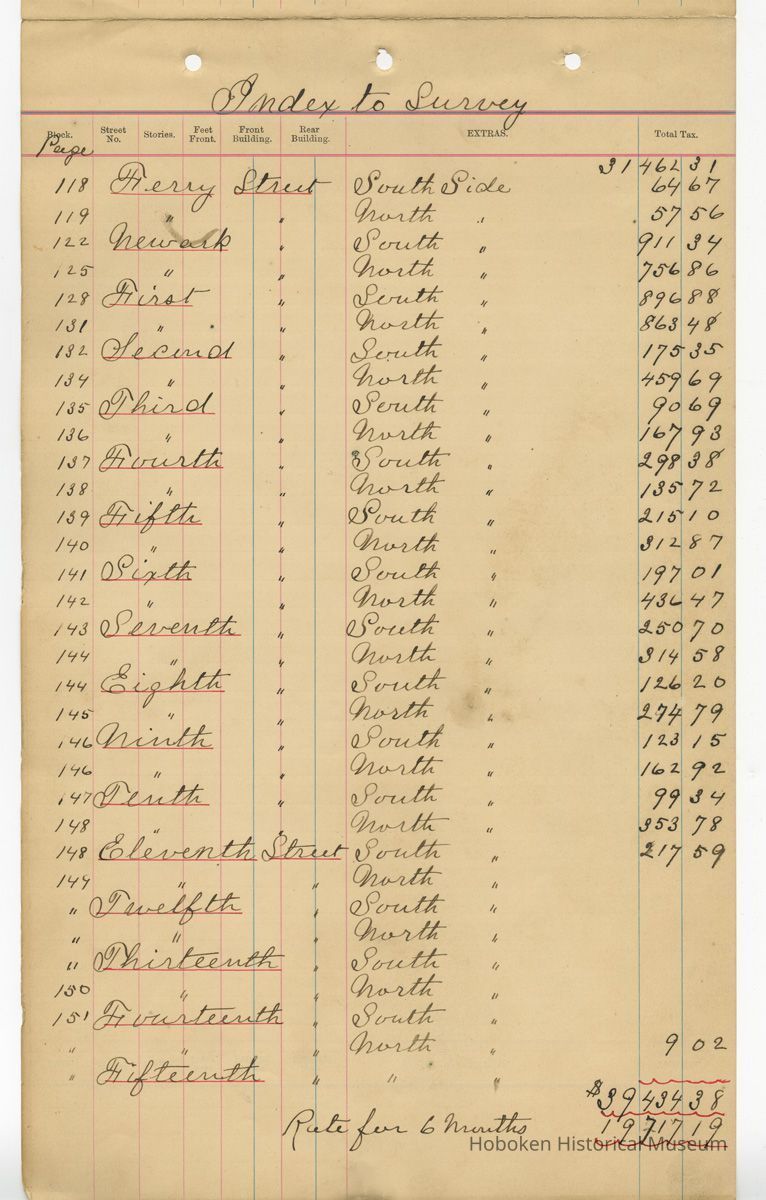 Index to Survey
Block. Street No. Stories. Feet Front. Front Building. Rear Building. EXTRAS. Total Tax.
Page
31 462 31
118 Ferry Street South Side 64 67
119 " " North " 57 56
122 Newark " South " 911 34
125 " " North " 756 86
128 First " South " 896 88
131 " " North " 863 48
132 Second " South " 175 35
134 " " North " 459 69
135 Third " South " 90 69
136 " " North " 167 93
137 Fourth " South " 298 38
138 " " North " 135 72
139 Fifth " South " 215 10
140 " " North " 312 87
141 Sixth " South " 197 01
142 " " North " 436 47
143 Seventh " South " 250 70
144 " " North " 314 58
144 Eighth " South " 126 20
145 " " North " 274 79
146 Ninth " South " 123 15
146 " " North " 162 92
147 Tenth " South " 99 34
148 " " North " 353 78
148 Eleventh Street South " 217 59
149 " " North "
" Twelfth " South "
" " " North "
" Thirteenth " South "
150 " " North "
151 Fourteenth " South "
" " " North " 9 02
" Fifteenth " " "
$39 434 38
Rate for 6 Months 19 717 19
Hoboken Historical Museum